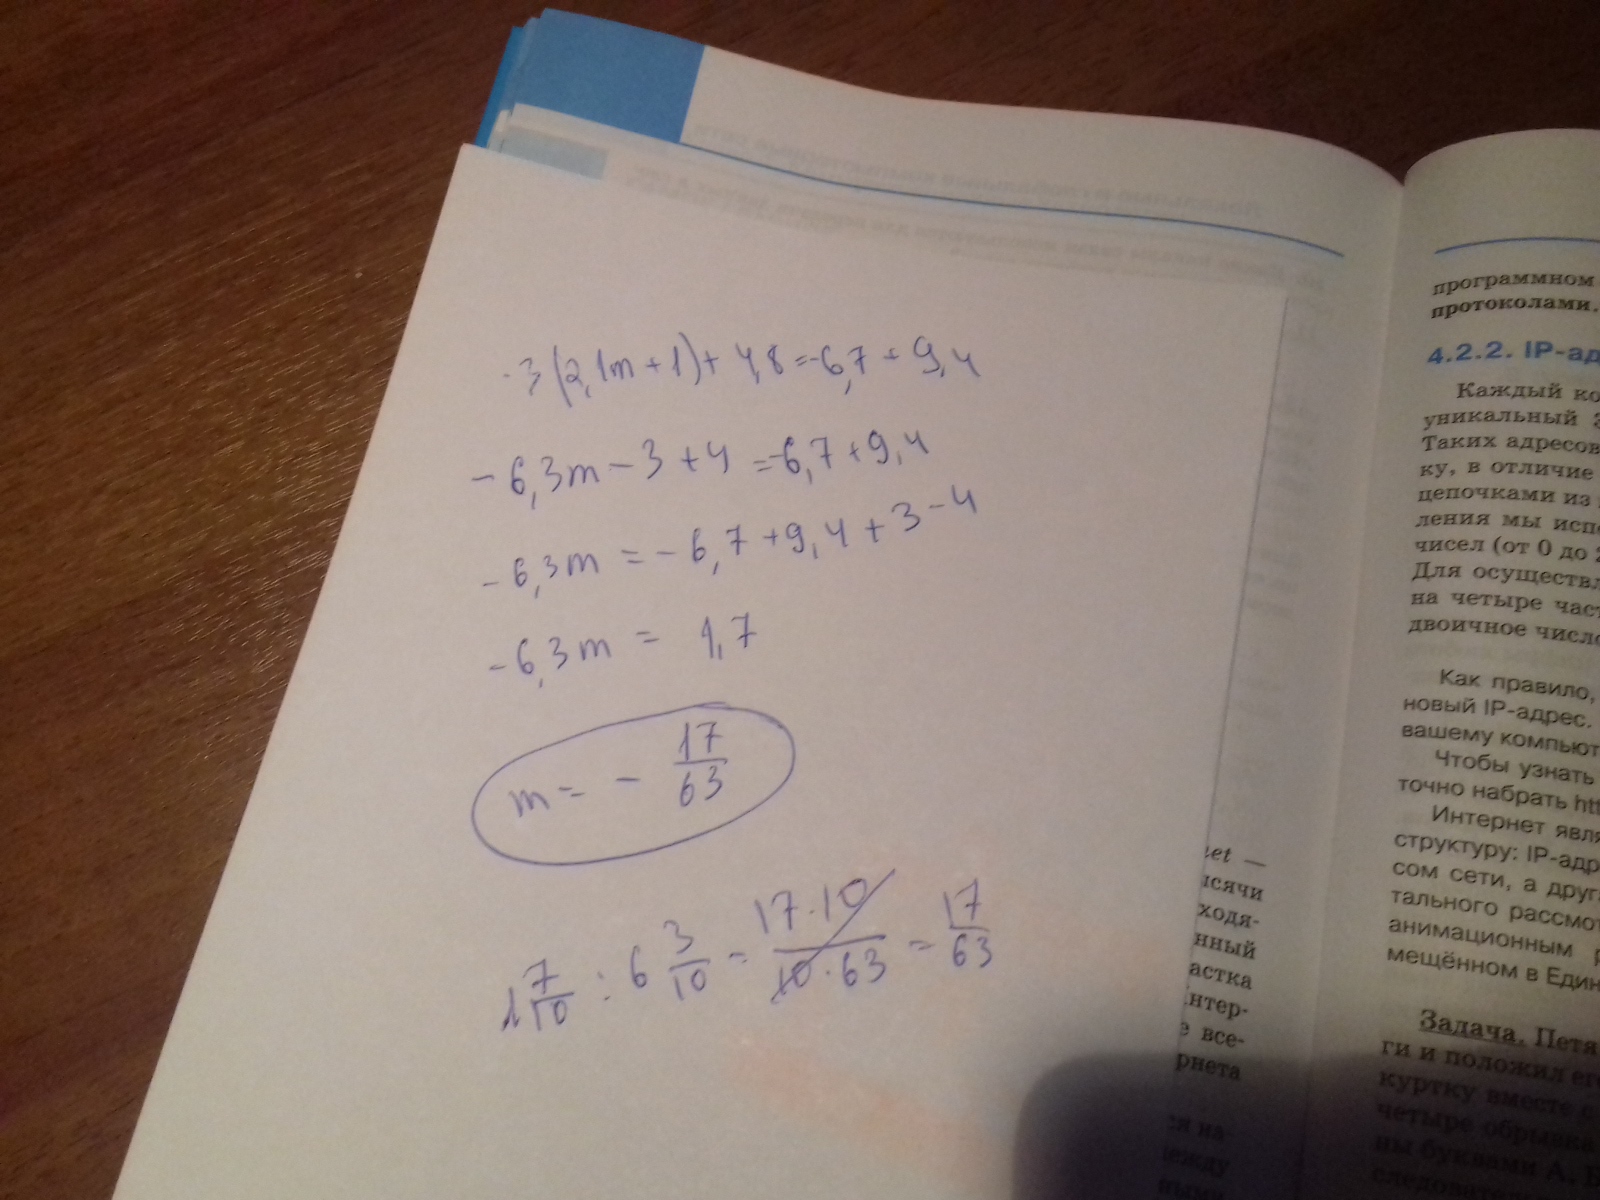 -3(2,1m+1)+4,8=-6,7+9,4
-6,3m-3+4=-6,7+9,4
-6,3m=-6,7+9,4+3-4
-6,3m=1,7
m=-17/63
1 7/10 : 6 3/10 = 17·10/10·63 = 17/63
net —
ходя-
нный
астка
Интер-
е все-
рнета
программном
протоколами.
4.2.2. IP-ад
Каждый ко
уникальный
Таких адресов
ку, в отличие
цепочками из
ления мы исп
чисел (от 0 до
Для осуществл
на четыре част
двоичное число
Как правило,
новый IP-адрес.
вашему компьют
Чтобы узнать
точно набрать htt
Интернет явля
структуру: IP-адр
сом сети, а друг
тального рассмот
анимационным р
мещённом в Един
Задача. Петя
ги и положил ег
куртку вместе с
четыре обрывка
ны буквами А, Б
следов